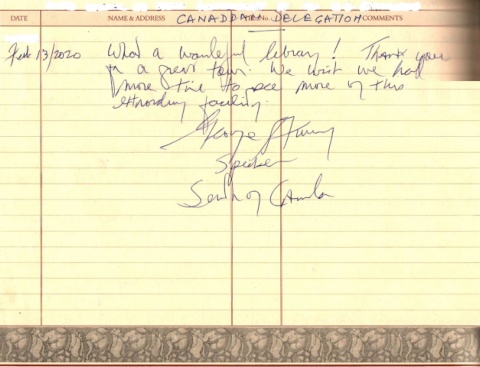 DATE NAME & ADDRESS CANADDAN DELEGATION No. COMMENTS
Feb 13/2020 What a wonderful library! Thank you
for a great tour. We wish we had
more time to see more of this
extraordinary facility.
George J Furey
Speaker
Senate of Canada